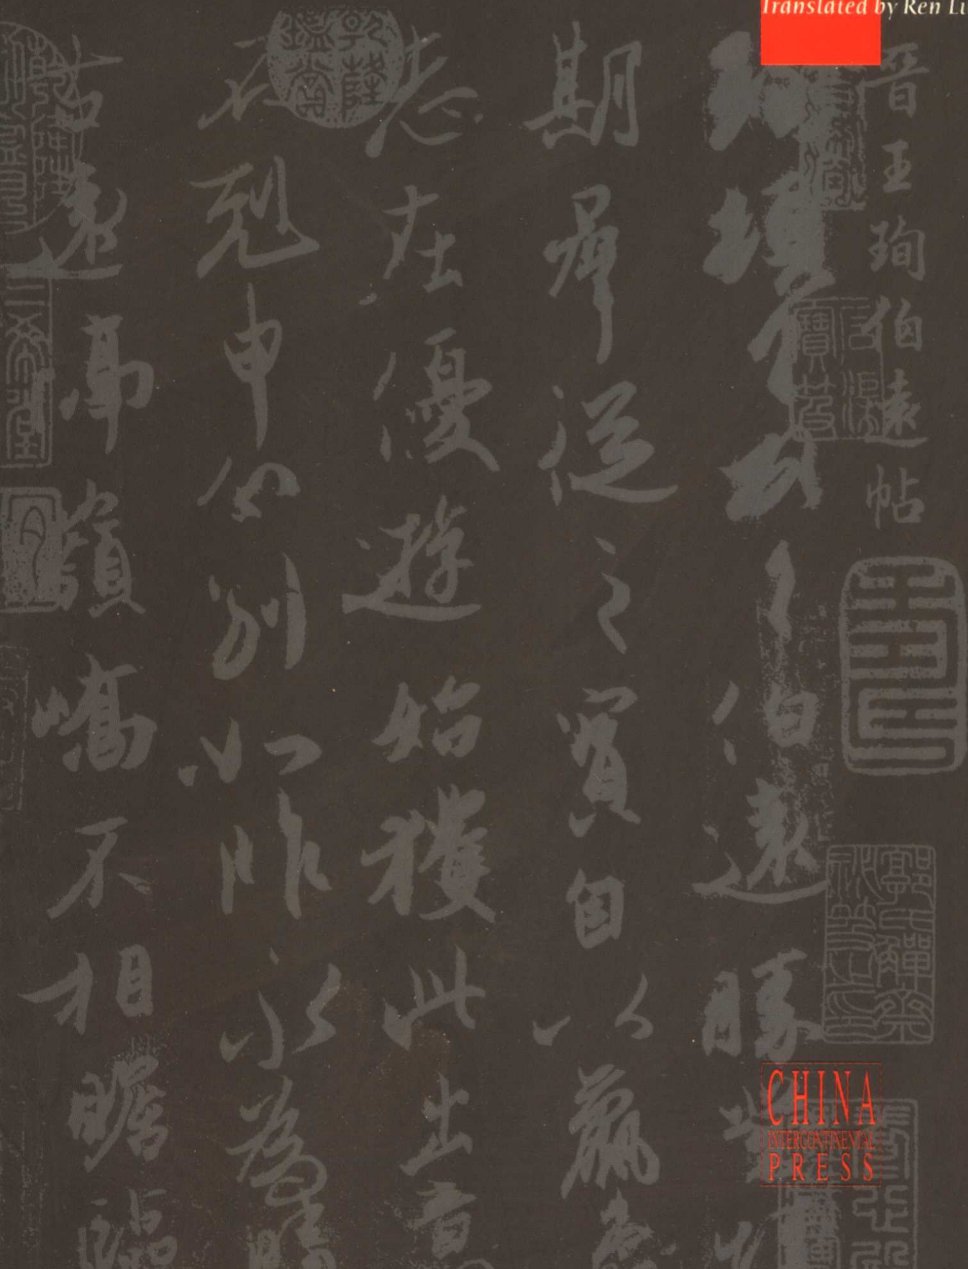 Translated by Ren
晋王珣伯遠帖
珣頓首頓首伯遠勝業情
期羣從之寶自以羸患
志在優遊始獲此出意
不剋申分別如昨永為疇
古遠隔嶺嶠不相瞻臨
乾隆鑑賞
三希堂
CHINA
INTERCONTINENTAL
PRESS